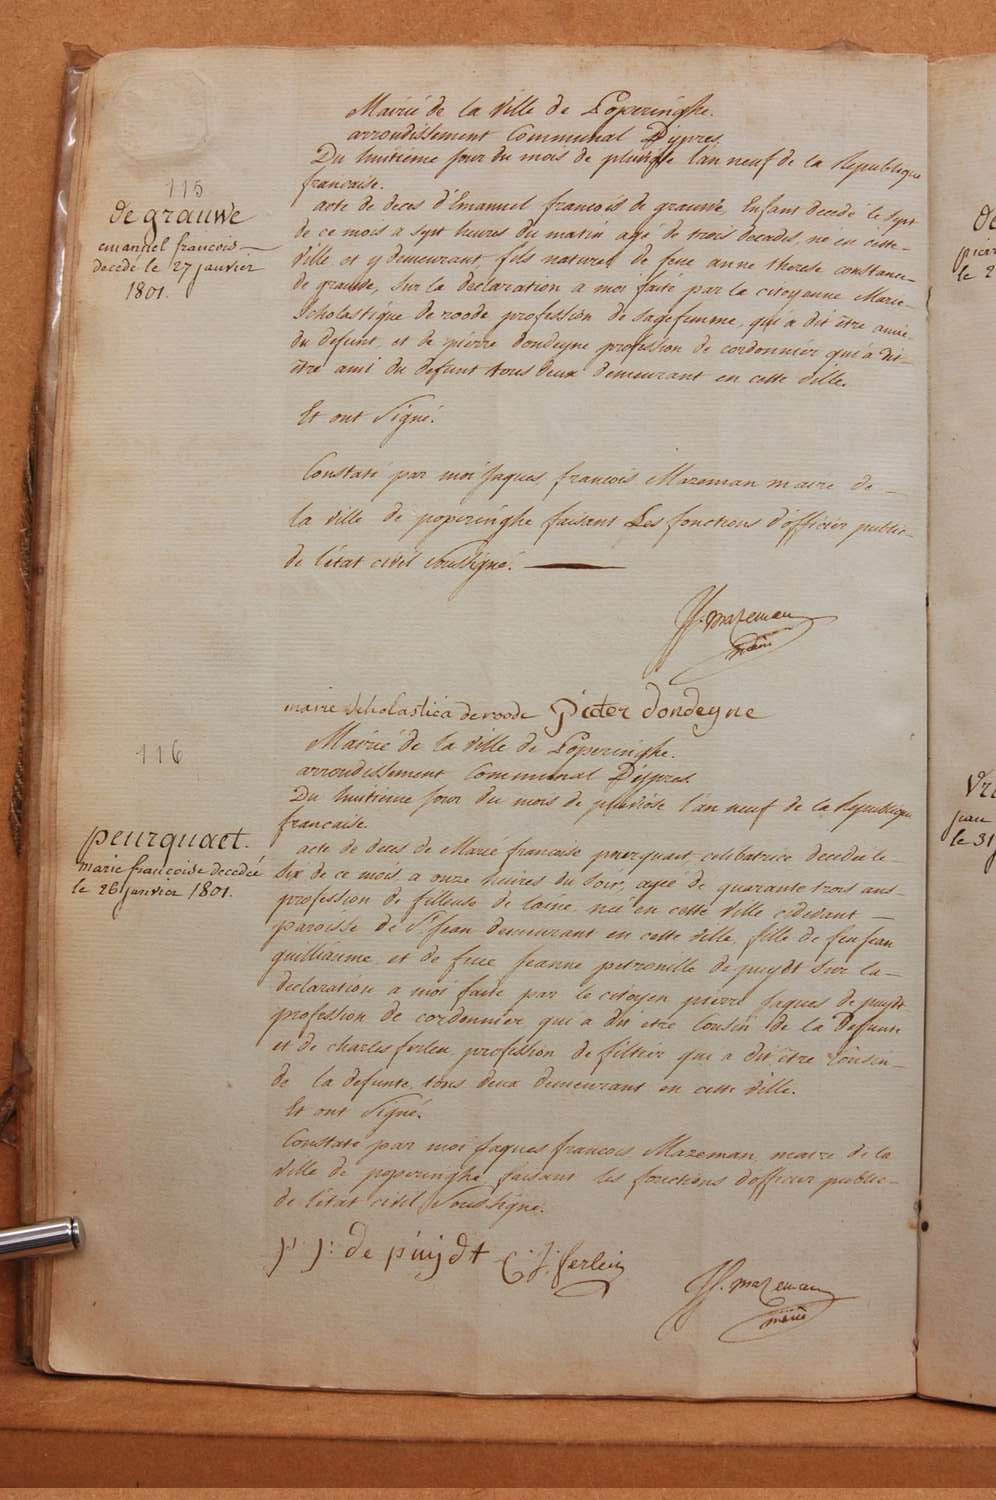 Mairié de la ville de Poperinghe.
arrondissement Communal D'ypres
Du huitieme jour du mois de pluviose l'an neuf de la Republique
francaise.
115
de grauwe
emanuel francois
decedé le 27 janvier
1801.
acte de deces d'Emanuel francois de grauwe, Enfant decedé le sept
de ce mois a sept heures du matin agé de trois decades, né en cette
ville et y demeurant, fils naturel de feue anne therese constance
de grauwe, sur la declaration a moi faite par la citoyenne Marie
Scholastique de roode, profession de sagefemme, qui a dit être amie
du defunt, et de pierre dondeyne profession de cordonnier qui a dit
être ami du defunt tous deux demeurant en cette ville.
Et ont Signé.
Constaté par moi Jaques francois Mazeman maire de
la ville de poperinghe faisant Les fonctions d'officier public
de l'état civil soussigné.
JJ. mazeman
maire
marie scholastica deroode Pieter dondeyne
116
Mairié de la ville de Poperinghe.
arrondissement Communal D'ypres
Du huitieme jour du mois de pluviôse l'an neuf de la Republique
francaise.
peurquaet.
marie françoise decedée
le 26 janvier 1801.
acte de deces de Marie francoise peurquaet celibatrice decedée le
six de ce mois, a onze heures du soir, agée de quarante trois ans
profession de fileuse de laine née en cette ville cidevant
paroisse de St. Jean demeurant en cette ville, fille de feu jean
guilliaume et de feue Jeanne petronille de puydt sur la
declaration a moi faite par le citoyen pierre Jaques de puydt
profession de cordonnier qui a dit etre Cousin de la Defunte
et de charles ferlen, profession de filtier qui a dit être Cousin
de la defunte, tous deux demeurant en cette ville.
Et ont Signé.
Constaté par moi Jaques francois Mazeman, maire de la
ville de poperinghe faisant les fonctions d'officier public
de l'état civil Soussigné.
p: j: de puijdt C: J: ferlein
JJ. mazeman
maire